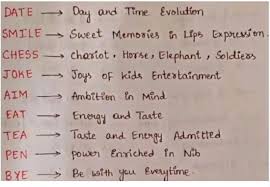 DATE → Day and Time Evolution
SMILE → Sweet Memories in Lips Expression.
CHESS → Chariot, Horse, Elephant, Soldiers
JOKE → Joys of Kids Entertainment
AIM → Ambition in Mind
EAT → Energy and Taste
TEA → Taste and Energy Admitted
PEN → power Enriched in Nib
BYE → Be with you Everytime.